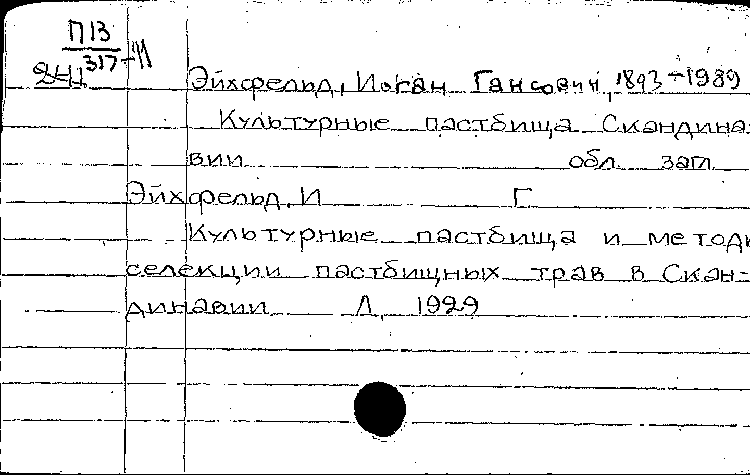 П13
317-11
241
Эйхфельд, Иоган Гансович, 1893-1989
Культурные пастбища Скандина-
вии обл. загл.
Эйхфельд, И Г
Культурные пастбища и методы
селекции пастбищных трав в Скан-
динавии Л, 1929